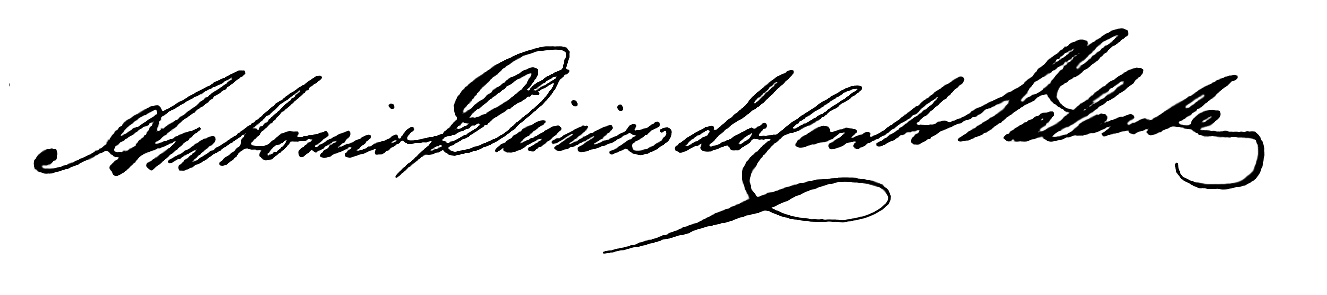 Antonio Diniz do Couto Valente